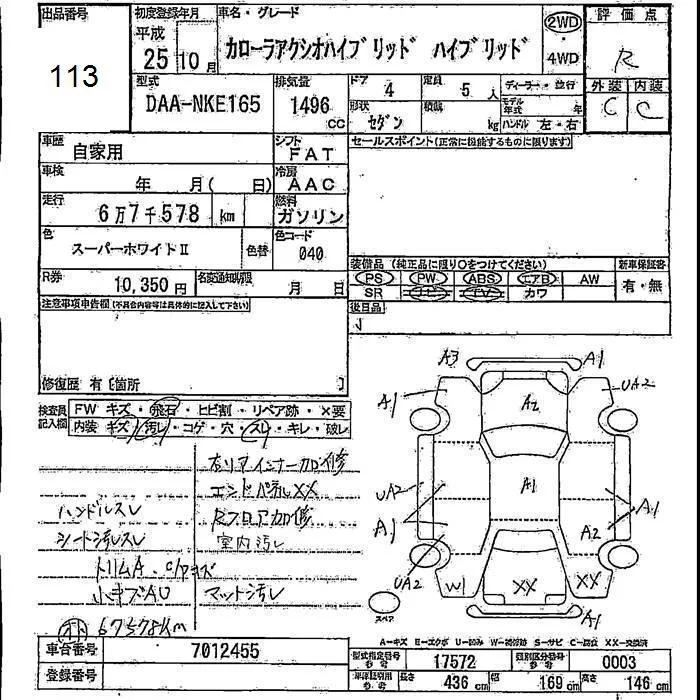 出品番号
113
初度登録年月
平成
25 10 月
車名・グレード
カローラアクシオハイブリッド ハイブリッド
2WD
・
4WD
評価点
R
外装 内装
C C
型式
DAA-NKE165
排気量
1496
CC
ドア 4
定員 5 人
ディーラー・並行
形状 セダン
積載 kg
モデル年式 年
ハンドル 左・右
車歴
自家用
シフト
FAT
セールスポイント(正常に機能するものに限ります)
車検
年 月( 日)
冷房
AAC
走行
6万7千578 km
燃料
ガソリン
色
スーパーホワイトⅡ
色替
色コード
040
装備品 (純正品に限り○をつけてください)
新車保証書
PS PW ABS エアB AW
SR ナビ TV カワ
有・無
R券
10,350 円
名変通知期限
月 日
後日品
注意事項申告欄(不具合内容等は具体的に記入して下さい)
修復歴 有〔箇所 〕
検査員記入欄
FW キズ・飛石・ヒビ割・リペア跡・×要
内装 キズ・汚レ・コゲ・穴・スレ・キレ・破レ
右リアインナー加修
エンドパネルXX
ハンドルスレ
Rフロア加修
シート汚レスレ
室内汚レ
トリムA.
小キズAU
マットヨゴレ
67578Km
A3 A1
A1 UA2
A2
UA2 A1
A1 A2 A1
UA2 W1 XX XX
A1
スペア
A－キズ E－エクボ U－凹み W－補修跡 S－サビ C－腐食 XX－交換済
車台番号
7012455
登録番号
型式指定番号
参考
17572
類別区分番号
参考
0003
車検証引用
参考
長さ 436 cm
幅 169 cm
高さ 146 cm